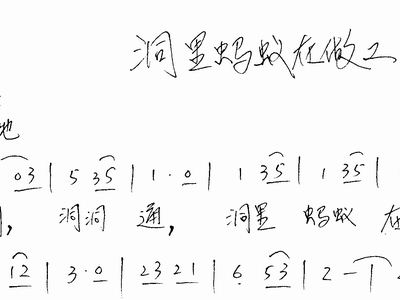 洞里蚂蚁在做工
地
03 | 5 35 | 1 · 0 | 1 35 | 1 35 |
洞洞 通， 洞里 蚂蚁 在
12 | 3 · 0 | 23 21 | 6 53 | 2 — |